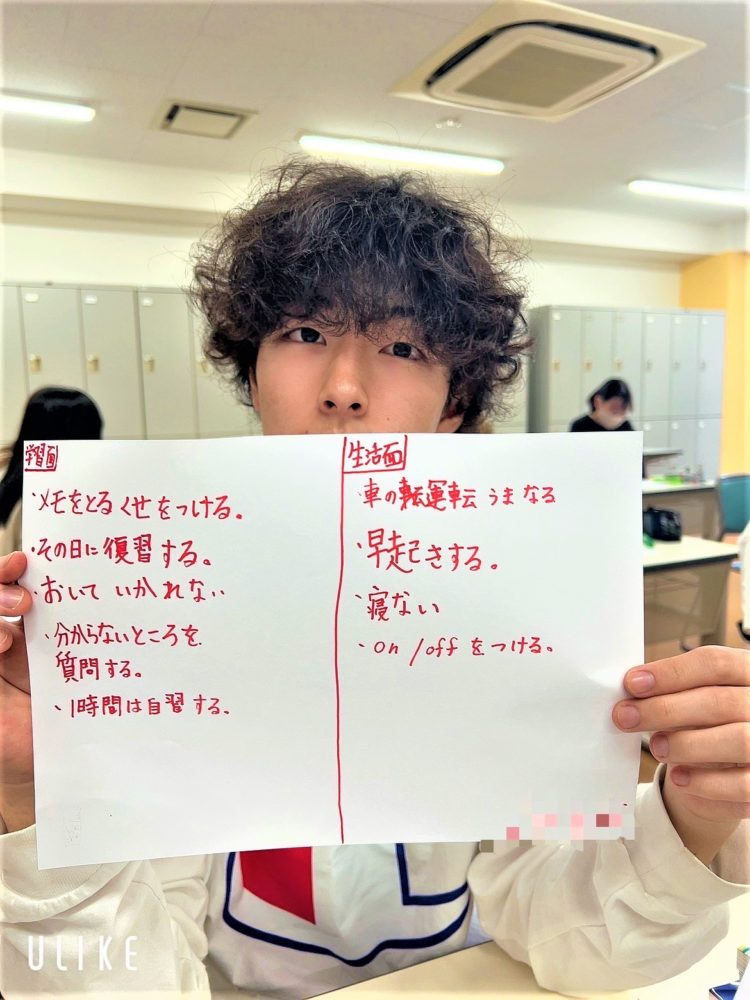 学習面
・メモをとるくせをつける。
・その日に復習する。
・おいていかれない
・分からないところを
質問する。
・1時間は自習する。
生活面
・車の転運転うまなる
・早起きする。
・寝ない
・on/offをつける。
ULIKE